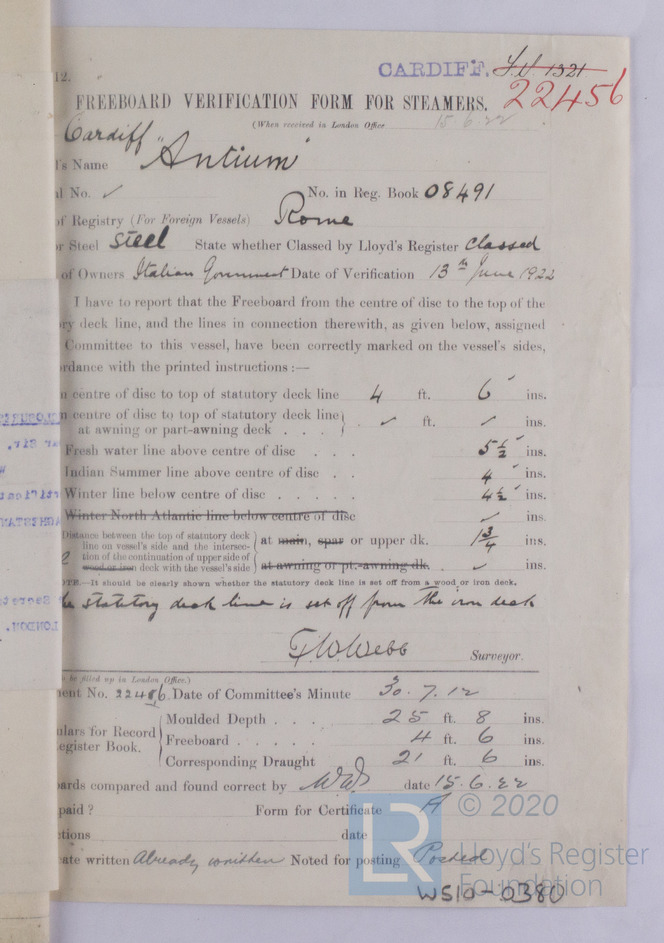 12.
CARDIFF. F.V. 1321
22456
FREEBOARD VERIFICATION FORM FOR STEAMERS.
(When received in London Office 15.6.22
Cardiff
's Name "Antium"
al No. ✓ No. in Reg. Book 08491
of Registry (For Foreign Vessels) Rome
or Steel Steel State whether Classed by Lloyd's Register Classed
of Owners Italian Government Date of Verification 13th June 1922
I have to report that the Freeboard from the centre of disc to the top of the
ry deck line, and the lines in connection therewith, as given below, assigned
Committee to this vessel, have been correctly marked on the vessel's sides,
rdance with the printed instructions :—
n centre of disc to top of statutory deck line 4 ft. 6 ins.
n centre of disc to top of statutory deck line
at awning or part-awning deck . . . ✓ ft. ✓ ins.
Fresh water line above centre of disc . . . 5½ ins.
Indian Summer line above centre of disc . . 4 ins.
Winter line below centre of disc . . . . . 4½ ins.
Winter North Atlantic line below centre of disc ✓ ins.
Distance between the top of statutory deck
line on vessel's side and the intersec- at main, spar or upper dk. 1¾ ins.
tion of the continuation of upper side of
wood or iron deck with the vessel's side at awning or pt.-awning dk. ✓ ins.
NOTE.—It should be clearly shown whether the statutory deck line is set off from a wood or iron deck.
he statutory deck line is set off from the iron deck
F.W.Webb Surveyor.
o be filled up in London Office.)
ent No. 22456 Date of Committee's Minute 30.7.12
ulars for Record
Register Book.
Moulded Depth . . . 25 ft. 8 ins.
Freeboard . . . . . 4 ft. 6 ins.
Corresponding Draught 21 ft. 6 ins.
oards compared and found correct by date 15.6.22
paid ? Form for Certificate A
ctions date
cate written Already written Noted for posting Posted
© 2020
LR
Lloyd's Register
Foundation
WS10-0380